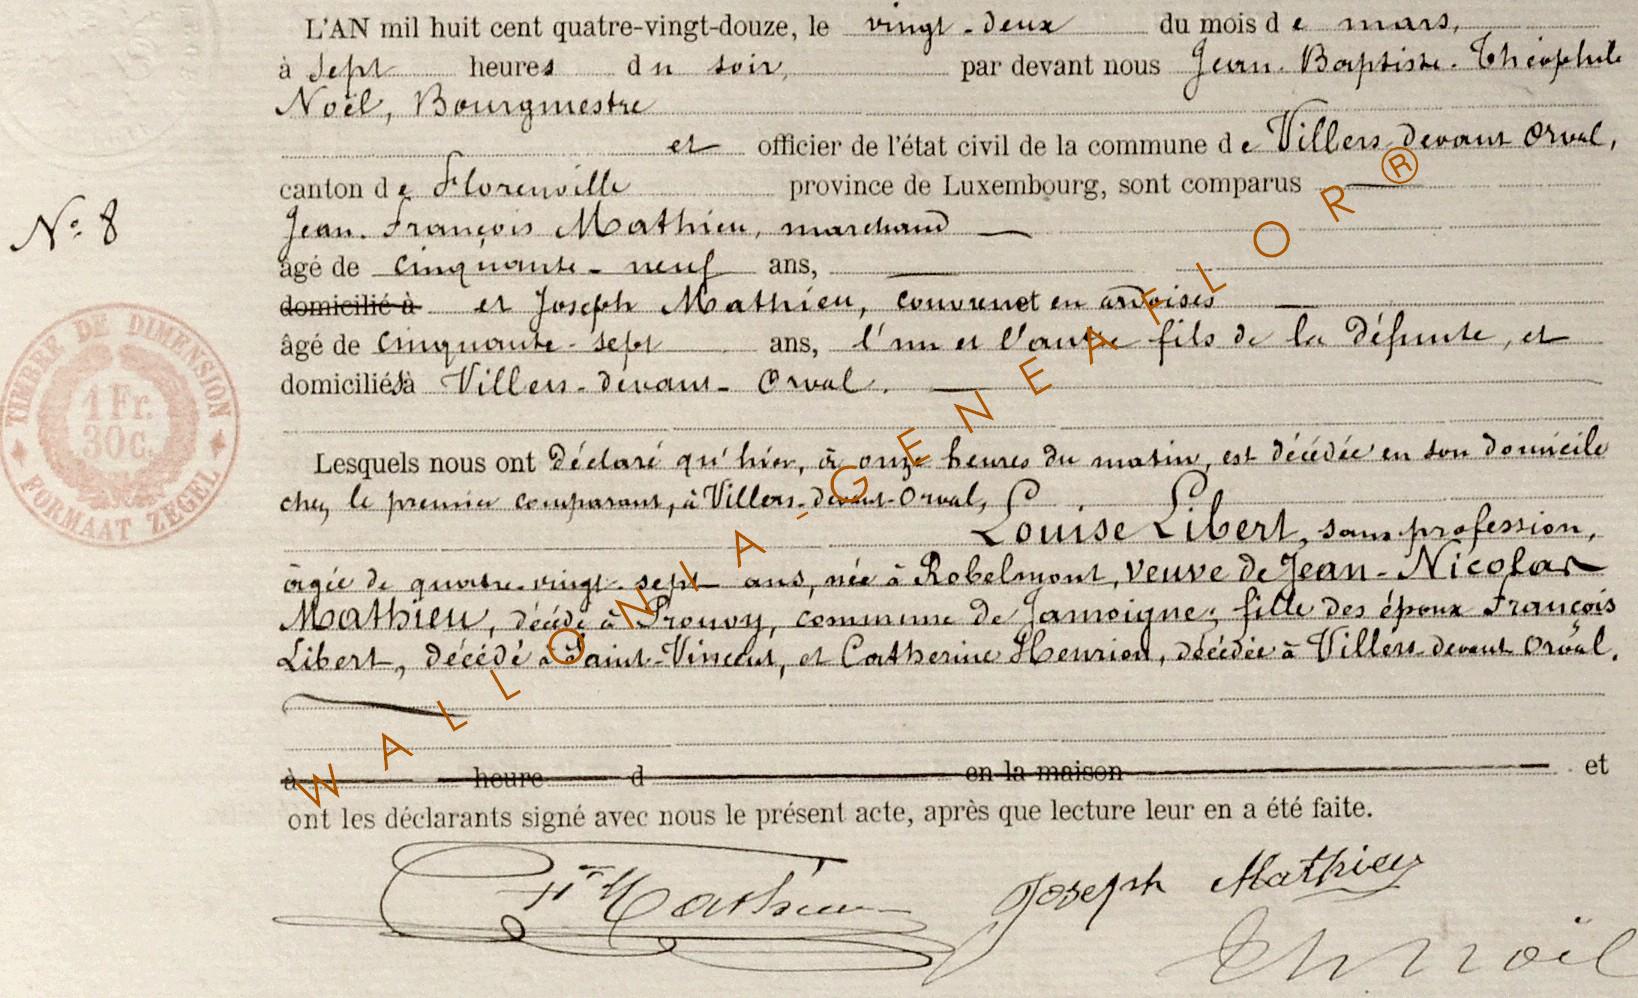 L'AN mil huit cent quatre-vingt-douze, le vingt-deux du mois de mars,
à sept heures du soir, par devant nous Jean-Baptiste-Théophile
Noël, Bourgmestre
et officier de l'état civil de la commune de Villers-devant-Orval,
canton de Florenville province de Luxembourg, sont comparus
N° 8
Jean-François Mathieu, marchand
âgé de cinquante-neuf ans,
domicilié à et Joseph Mathieu, couvreur en ardoises
âgé de cinquante-sept ans, l'un et l'autre fils de la défunte, et
domiciliés à Villers-devant-Orval.
TIMBRE DE DIMENSION
1 Fr.
30c.
FORMAAT ZEGEL
Lesquels nous ont déclaré qu'hier, à onze heures du matin, est décédée en son domicile
chez le premier comparant, à Villers-devant-Orval,
Louise Libert, sans profession,
âgée de quatre-vingt-sept ans, née à Robelmont, veuve de Jean-Nicolas
Mathieu, décédé à Prouvy, commune de Jamoigne; fille des époux François
Libert, décédé à Saint-Vincent, et Catherine Henrion, décédée à Villers-devant-Orval.
à heure d en la maison et
ont les déclarants signé avec nous le présent acte, après que lecture leur en a été faite.
Mathieu Joseph Mathieu
Th Noël
WALLONIA-GENEAFLOR®